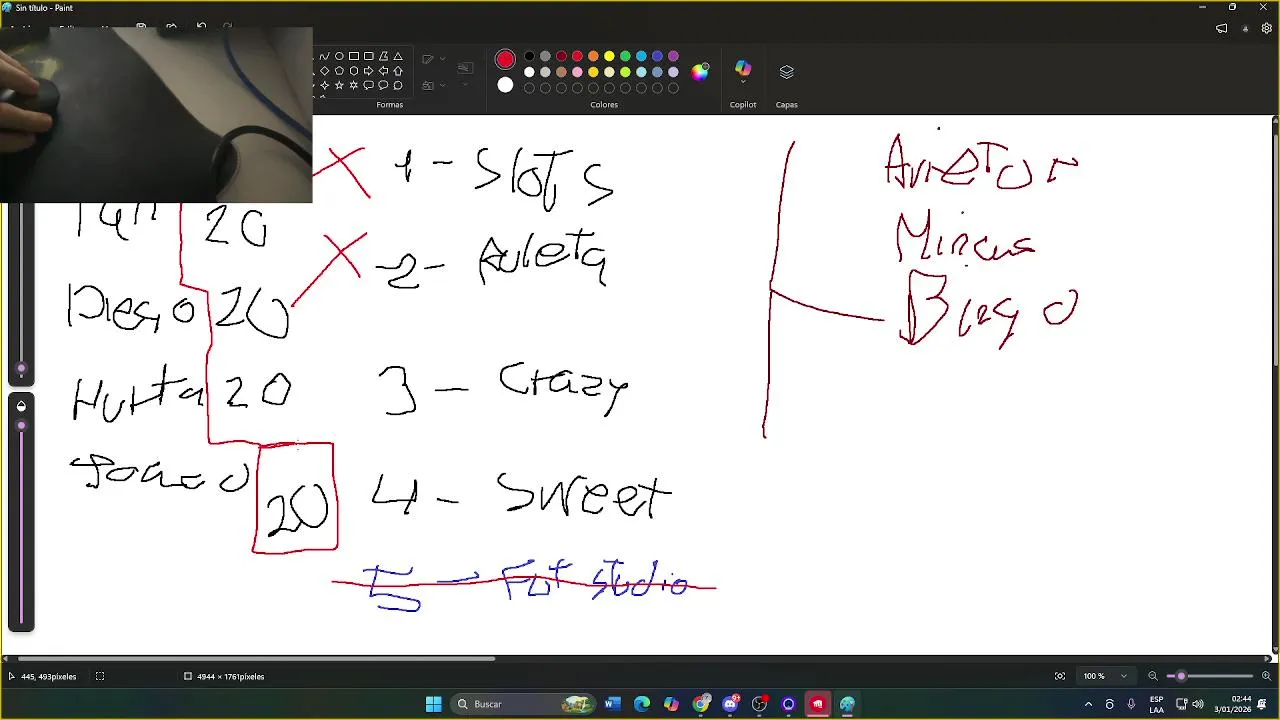 Sin título - Paint
Formas
Colores
Copilot
Capas
1 - Slots
20
2 - Ruleta
Diego 20
Aviator
Minas
20
3 - Crazy
20
4 - Sweet
5 - Fut studio
445, 493píxeles
4944 × 1761píxeles
100 %
Buscar
ESP
LAA
02:44
3/01/2026